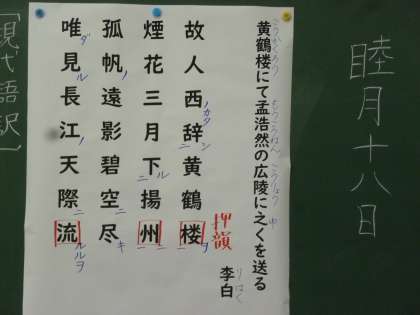 睦月十八日
黄鶴楼にて孟浩然の広陵に之くを送る
李白
押韻
故人西辞黄鶴楼
煙花三月下揚州
孤帆遠影碧空尽
唯見長江天際流
「現代語訳」